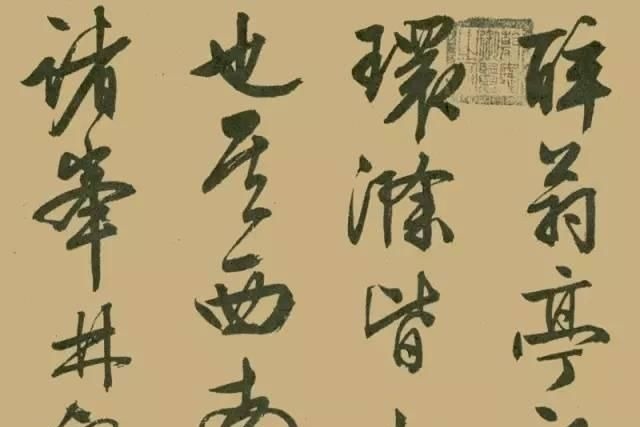 酔翁亭
環滁皆
也其西南
諸峯林